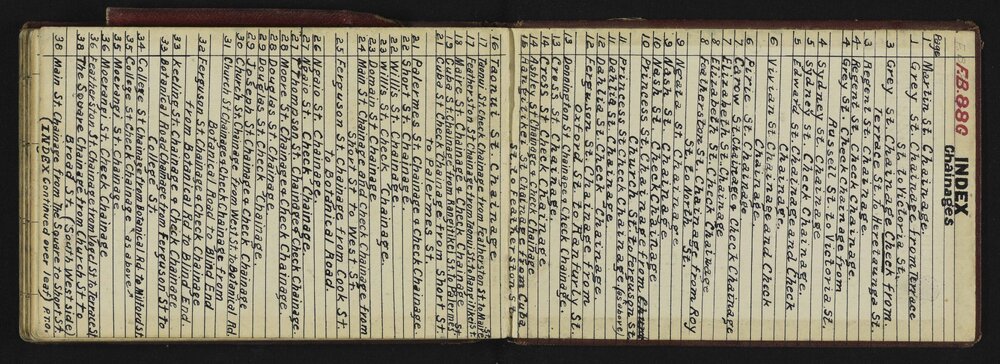 F.B. 880
INDEX
Chainages
Page
1 Martin St. Chainage.
1 Grey St. Chainage from Terrace
St. to Victoria St.
3 Grey St. Chainage Check from
Terrace St. To Heretaunga St.
3 Regent St. Chainage.
4 Regent St. Check Chainage.
4 Grey St. Check Chainage from
Russell St to Victoria St.
4 Sydney St. Chainage
5 Sydney St. Check Chainage.
5 Edward St. Chainage and Check
Chainage.
6 Vivian St. Chainage and Check
Chainage.
6 Pirie St. Chainage.
7 Carow St. Chainage & Check Chainage
7 Elizabeth St. Chainage
8 Elizabeth St. Check Chainage
8 Featherston St. Chainage from Roy
St. to North St.
9 Ngata St. Chainage.
9 Nash St. Chainage
10 Nash St. Check Chainage.
11 Princess St. Chainage from
Church St to Ferguson St
11 Princess St. Check Chainage (as above)
11 Dahlia St. Chainage
12 Dahlia St. Check Chainage.
12 Ferguson St. Chainage from
Ord St. to Manchr St.
13 Donnington St. Chainage & Check Chainage.
13 Cross St. Chainage
14 Cross St. Check Chainage
14 Ashley St. Chainage & Check Chainage
15 Rangitikei St. Chainage from Cuba
St. to Featherston St.
16 Taonui St. Chainage
17 Taonui St. Check Chainage from Featherston St. to Maire St.
17 Featherston St. Chainage from Taonui St. to Rangitikei St.
18 Maire St. Chainage & Check Chainage
19 Cuba St. Chainage from Rangitikei St. to Palermes St.
21 Cuba St. Check Chainage from Short St.
to Palermes St.
21 Palermes St. Chainage & Check Chainage
22 Short St. Chainage.
22 Willis St. Chainage.
23 Willis St. Check Chainage.
23 Domain St. Chainage
24 Domain St. Check Chainage
24 Main St. Chainage and Check Chainage from
Cook St. to West St
25 Ferguson St. Chainage from Cook St.
to Botanical Road.
26 Ngaio St. Chainage.
27 Ngaio St. Check Chainage.
27 Thomson St. Chainage & Check Chainage.
28 Moore St. Chainage & Check Chainage.
28 Douglas St. Chainage
29 Douglas St. Check Chainage.
29 Joseph St. Chainage & Check Chainage
30 Church St. Chainage from West St. to Botanical Rd.
31 Church St Chainage & Check Chainage from
Botanical Road to Blind End
32 Ferguson St. Chainage & Check Chainage
from Botanical Rd to Blind End.
33 Keeling St. Chainage & Check Chainage
33 Botanical Road Chainage from Ferguson St to
College St.
34 College St. Chainage from Botanical Rd. to Milford St.
35 College St Check Chainage "as above".
35 Moerangi St. Chainage
36 Moerangi St. Check Chainage
36 Featherston St. Chainage from Vogel St. to Terrace St.
38 The Square Chainage from Church St to
Broad St. (South West side)
38 Main St. Chainage from The Square to Short St.
(INDEX Continued over leaf) P.T.O.